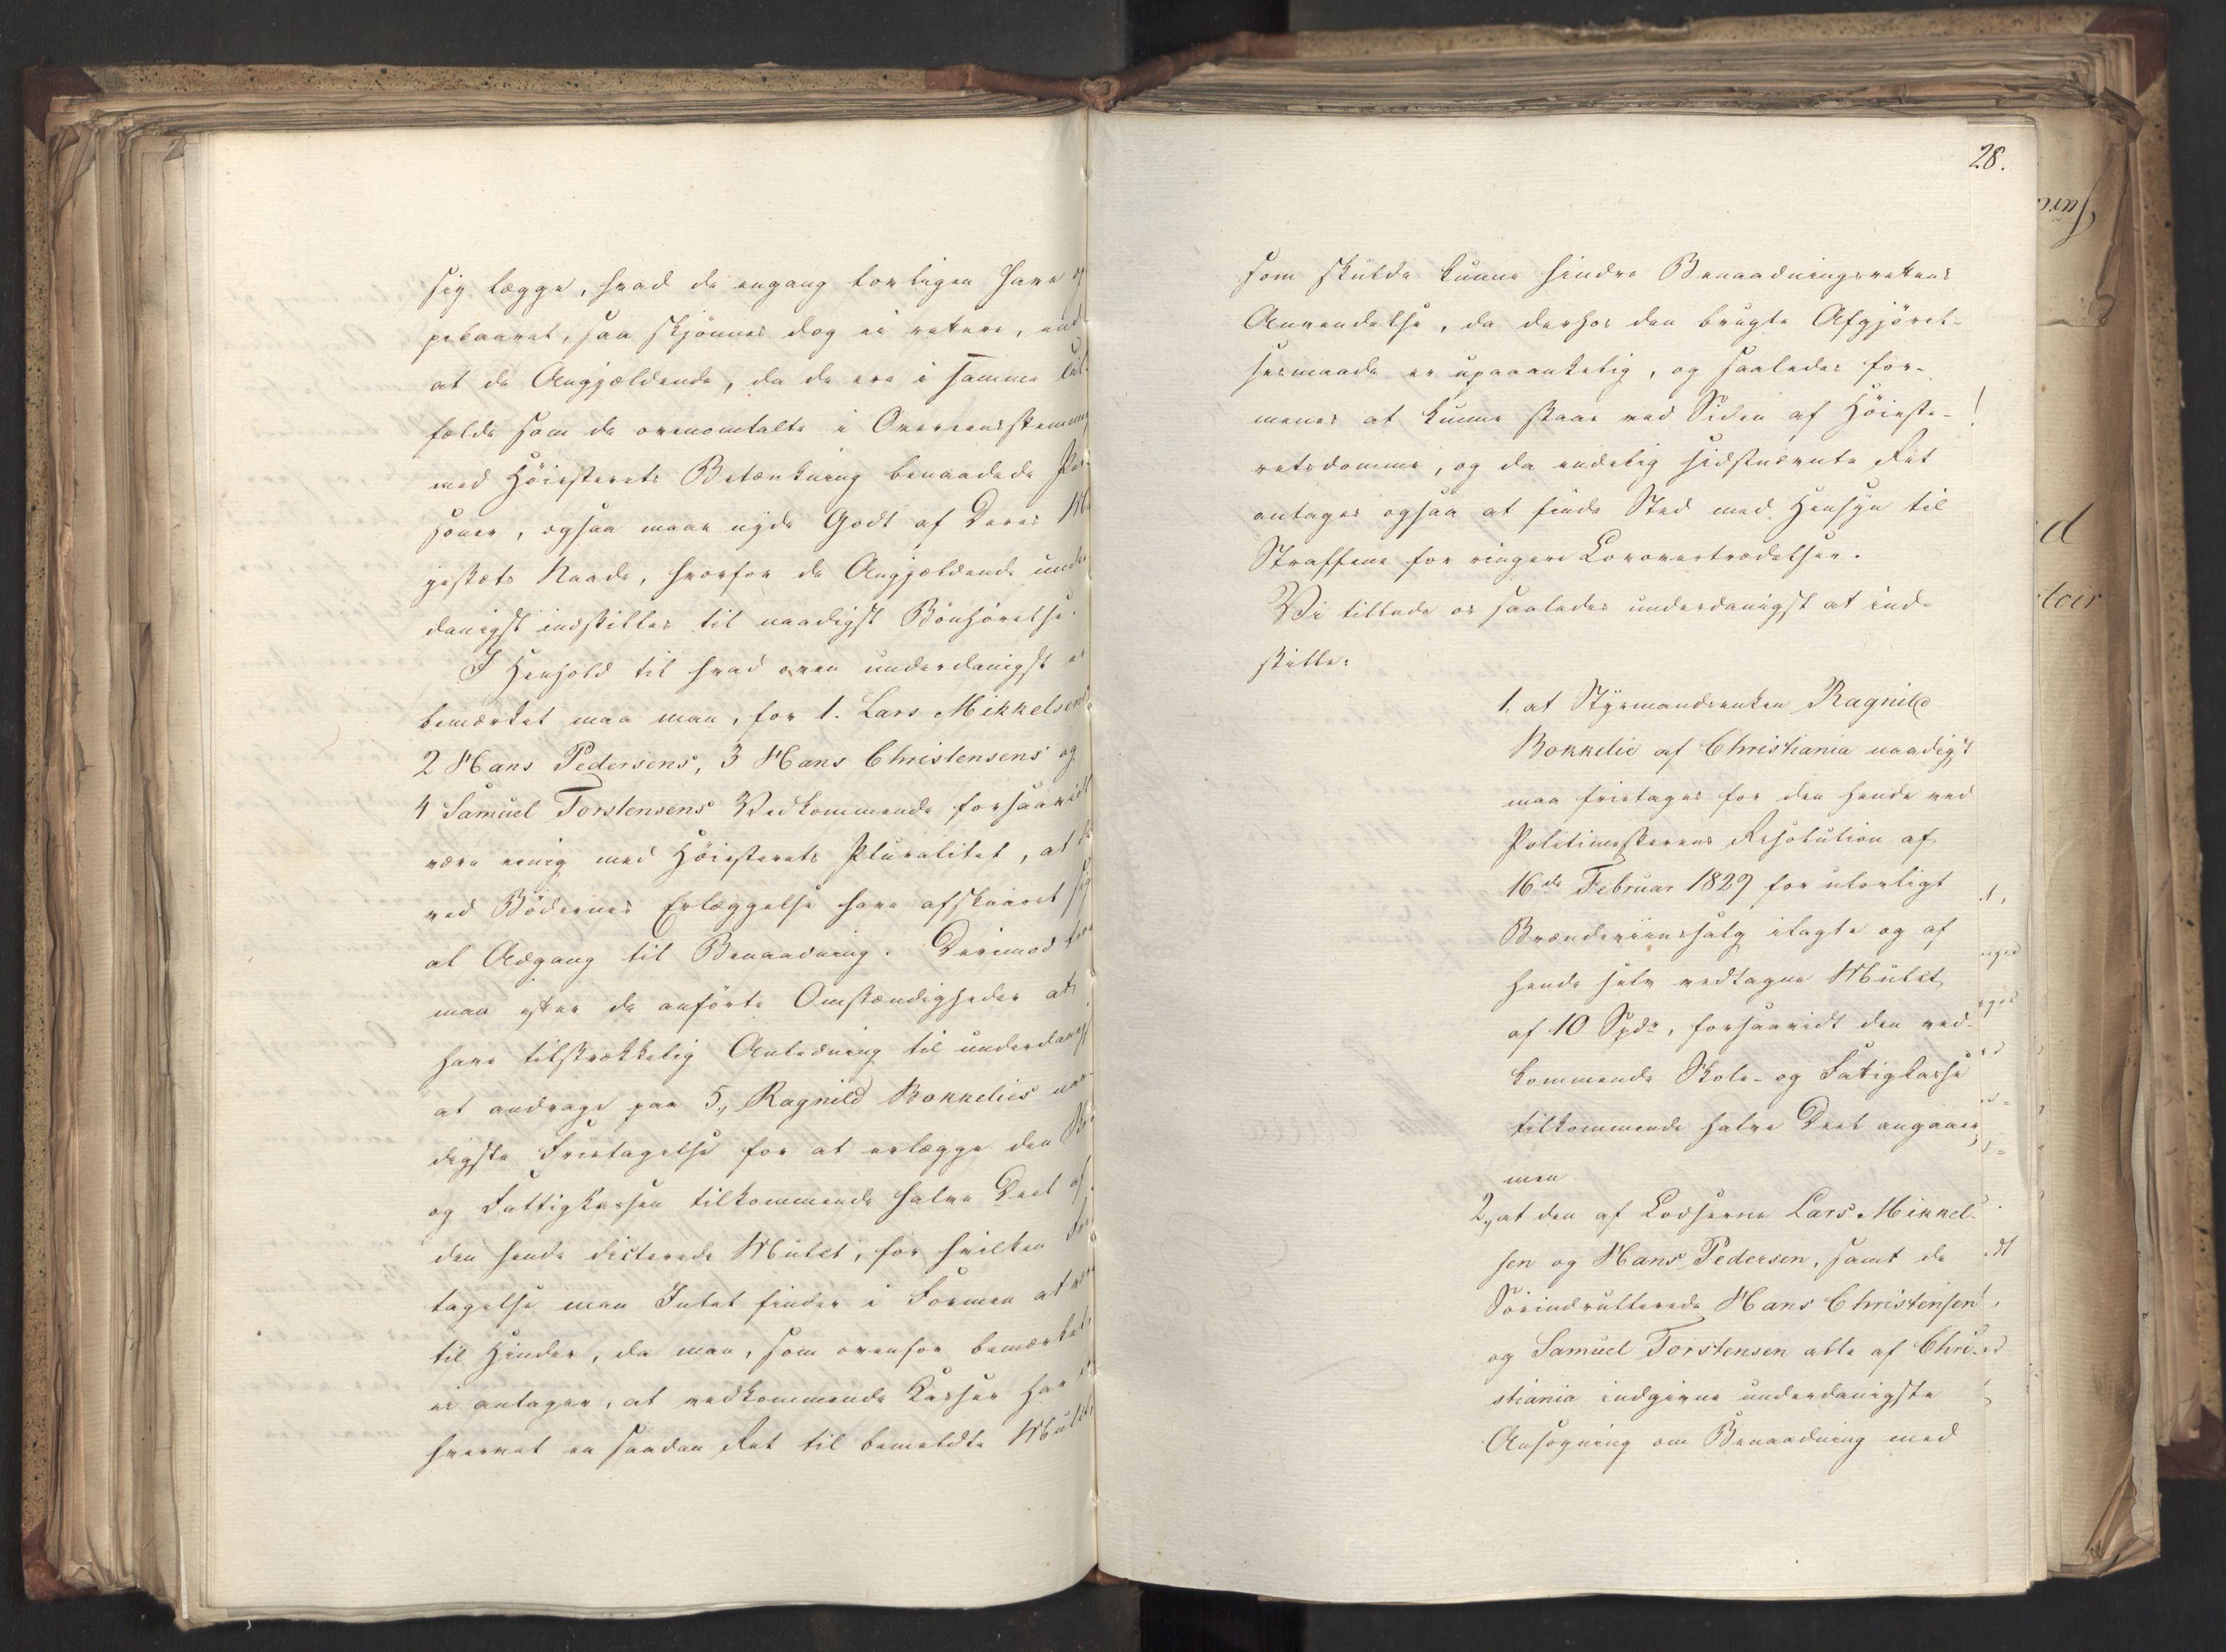 sig lægge, hvad de engang lovligen have op-
pebaaret, saa skjønnes dog ei rettere, end
at de Angjældende, da de ere i samme Til-
fælde som de ovenomtalte i Overeensstemmelse
med Høiesterets Betænkning benaadede Per-
soner, ogsaa maae nyde Godt af Deres Ma-
jestæts Naade, hvorfor de Angjældende under-
danigst indstilles til naadigst Bønhørelse.
I Henhold til hvad oven underdanigst er
bemærket maa man, for 1. Lars Mikkelsens
2 Hans Pedersens, 3 Hans Christensens og
4 Samuel Torstensens Vedkommende forsaavidt
være eenig med Høiesterets Pluralitet, at de
ved Bødernes Erlæggelse have afskaaret sig
al Adgang til Benaadning. Derimod troer
man efter de anførte Omstændigheder at
have tilstrækkelig Anledning til underdanigst
at andrage paa 5, Ragnild Bokkelies naa-
digste Fritagelse for at erlægge den Skole-
og Fattigkassen tilkommende halve Deel af
den hende dicterede Mulct, for hvilken Fri-
tagelse man Intet finder i Formen at være
til Hinder, da man, som ovenfor bemærket,
ei antager, at vedkommende Kasser har er-
hvervet en saadan Ret til bemeldte Mulct,
28.
som skulde kunne hindre Benaadningsrettens
Anvendelse, da derhos den brugte Afgjørel-
sesmaade er upaaankelig, og saaledes for-
menes at kunne staae ved Siden af Høieste-
retsdomme, og da endelig sidstnævnte Ret
antages ogsaa at finde Sted med Hensyn til
Straffene for ringere Lovovertrædelser.
Vi tillade os saaledes underdanigst at ind-
stille:
1. at Styrmandsenken Ragnild
Bokkelie af Christiania naadigst
maa fritages for den hende ved
Politimesterens Resolution af
16de Februar 1829 for ulovligt
Brændeviinssalg ilagte og af
hende selv vedtagne Mulct
af 10 Spdr, forsaavidt den ved-
kommende Skole- og Fattigkasse
tilkommende halve Deel angaaer,
men
2, at den af Lodserne Lars Mikkel-
sen og Hans Pedersen, samt de
Søindrullerede Hans Christensen
og Samuel Torstensen alle af Chri-
stiania indgivne underdanigste
Ansøgning om Benaadning med